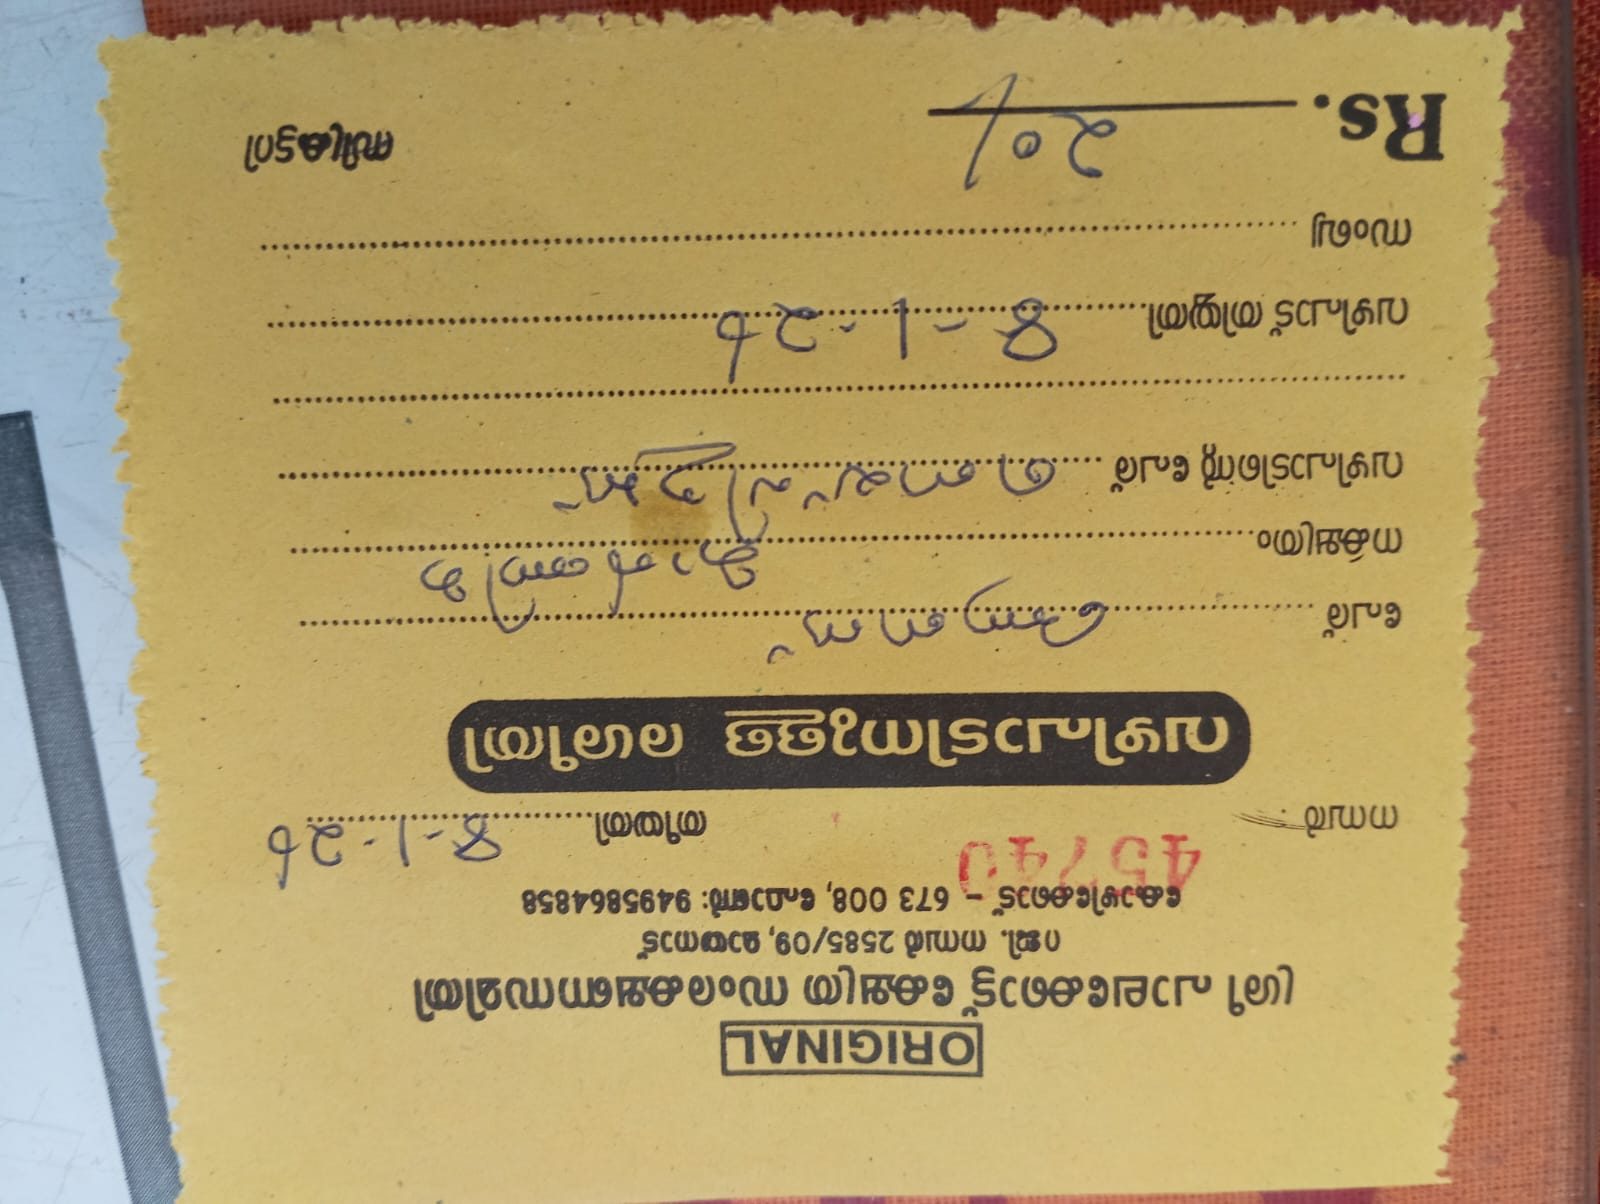 ORIGINAL
ശ്രീ പാലക്കോട്ട് ക്ഷേത്ര സംരക്ഷണസമിതി
റജി. നമ്പർ 2585/09, മായനാട്
കോഴിക്കോട് - 673 008, ഫോൺ: 9495864858
നമ്പർ 45740 തീയതി 8-1-26
വഴിപാടിനുള്ള രശീതി
പേര്
നക്ഷത്രം കാർത്തിക
വഴിപാടിന്റെ പേര്
വഴിപാട് തിയ്യതി 8-1-26
സംഖ്യ
Rs. 20/ സിക്രട്ടറി